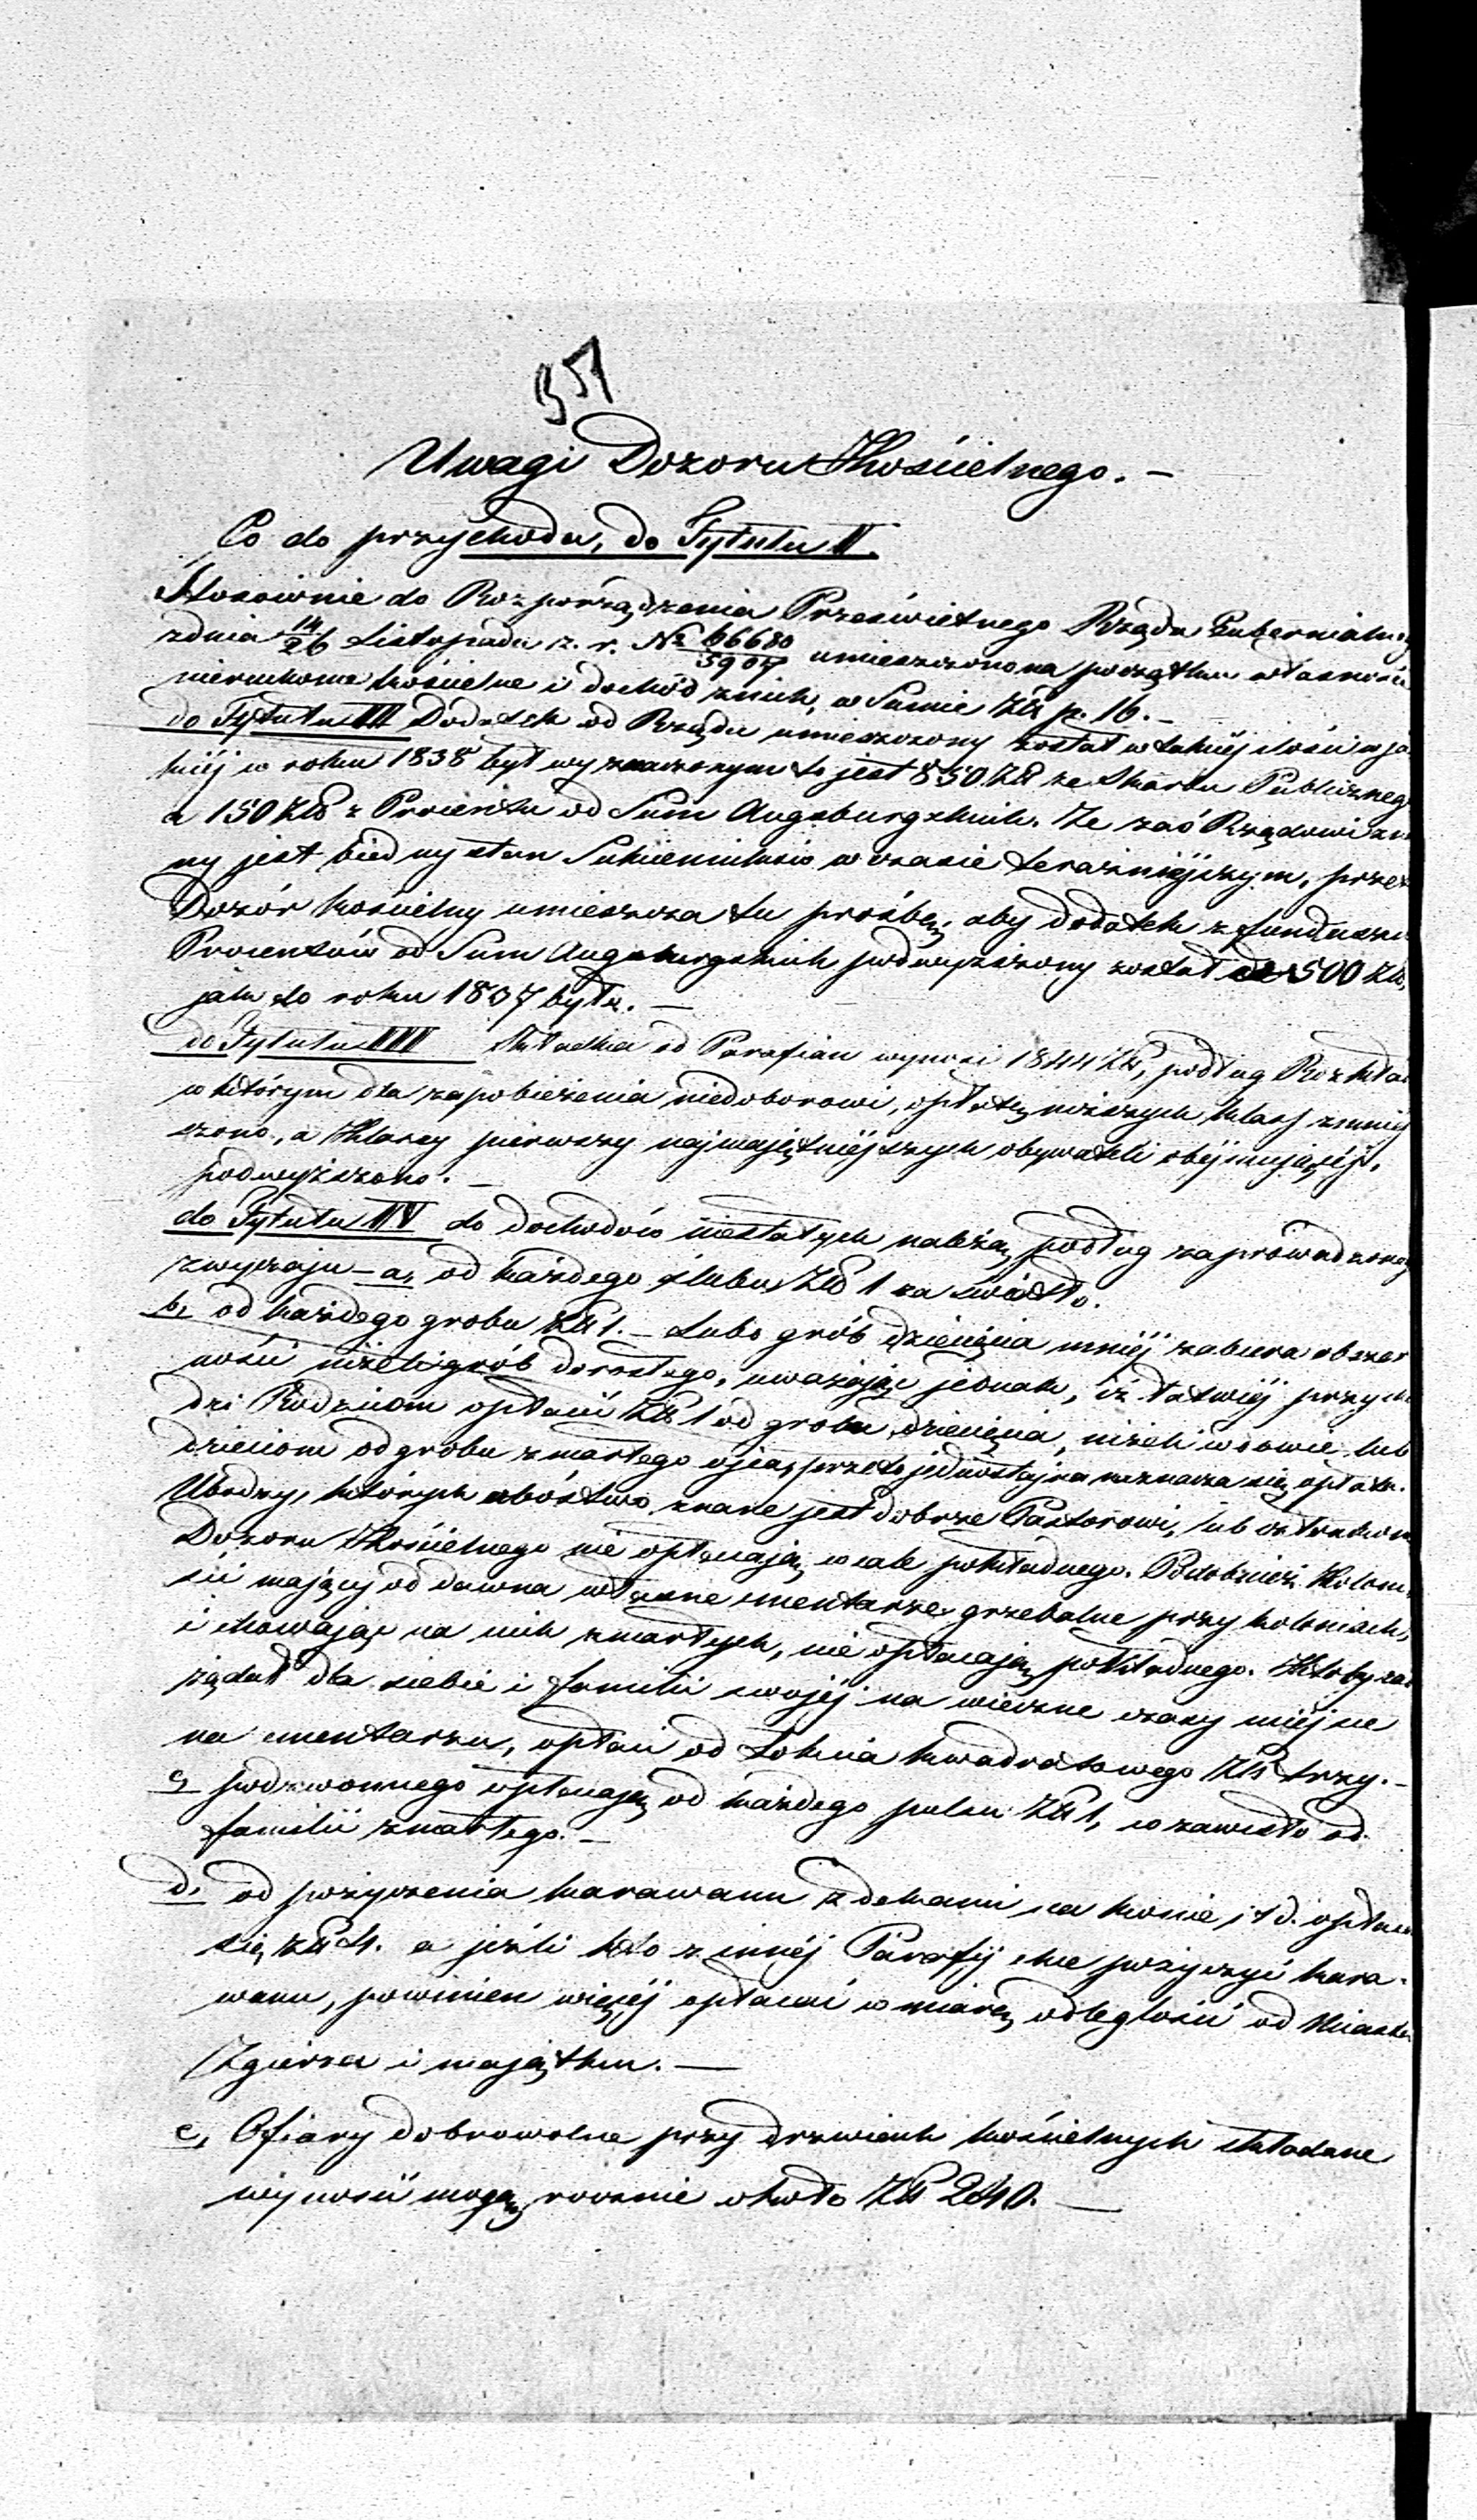 951
Uwagi Dozoru Kościelnego. —
Co do przychodu, do Tytułu I.
Stosownie do Rozporządzenia Prześwietnego Rządu Gubernialne
zdnia 14/26 Listopada z. r. № 66680/5907 umieszczono na początku własności
nieruchome kościelne i dochód znich, w Sumie Złp. 16. —
do Tytułu II Dodatek od Rządu umieszczony został w takiéj ilości w ja
kiéj w roku 1838 był wyznaczonym to jest 850 Zł ze Skarbu Publiczneg
a 150 Zł z Procentu od Sum Augsburgskich. Że zaś Rządowi zna
ny jest biedny stan Sukienników w czasie teraźniéjszym, przet
Dozór kościelny umieszcza tu prośbę, aby dodatek z funduszu
Procentów od Sum Augsburgskich podwyższony został do 500 Zł,
jak do roku 1837 było. —
do Tytułu III Składka od Parafian wynosi 1844 Zł, podług Rozkła
w którym dla zapobieżenia niedoborowi, opłatę niższych klass zmniéj
szono, a Klassy pierwszy najmajętniéjszych obywateli obéjmującéj,
podwyższono. —
do Tytułu IV do dochodów niestałych należą, podług zaprowadzoneg
zwyczaju — a, od każdego ślubu Zł 1 za światło.
b, od każdego grobu Zł 1. — Lubo grób dziecięcia mniéj zabiera obszer
ności niżeli grób dorosłego, uważając jednak, iż łatwiéj przycho
dzi Rodzicom opłacić Zł 1 od grobu dziecięcia, niżeli wdowie lub
dzieciom od grobu zmarłego ojca, przeto jednostajna naznacza się opłata.
Ubodzy, których ubóstwo znane jest dobrze Pastorowi, lub członkom
Dozoru Kościelnego nie opłacają wcale pokładnego. Podobnież Koloni
ści mający od dawna własne cmentarze grzebalne przy koloniach,
i chowając na nich zmarłych, nie opłacają pokładnego. Ktoby zaś
żądał dla siebie i familii swojéj na wieczne czasy miéjsce
na cmentarzu, opłaci od Łokcia kwadratowego Zł trzy. —
c, podzwonnego opłacają od każdego pulsu Zł 1, co zawisło od
familii zmarłego. —
d, od pożyczenia karawanu z dekami na konie i t d. opłaca
się Zł 4. a jeśli kto z innéj Parafij chce pożyczyć kara-
wanu, powinien więcéj opłacić w miarę odległości od Miasta
Zgierza i majątku. —
e, Ofiary dobrowolne przy drzwiach kościelnych składane
wynosić mogą rocznie około Zł 240. —